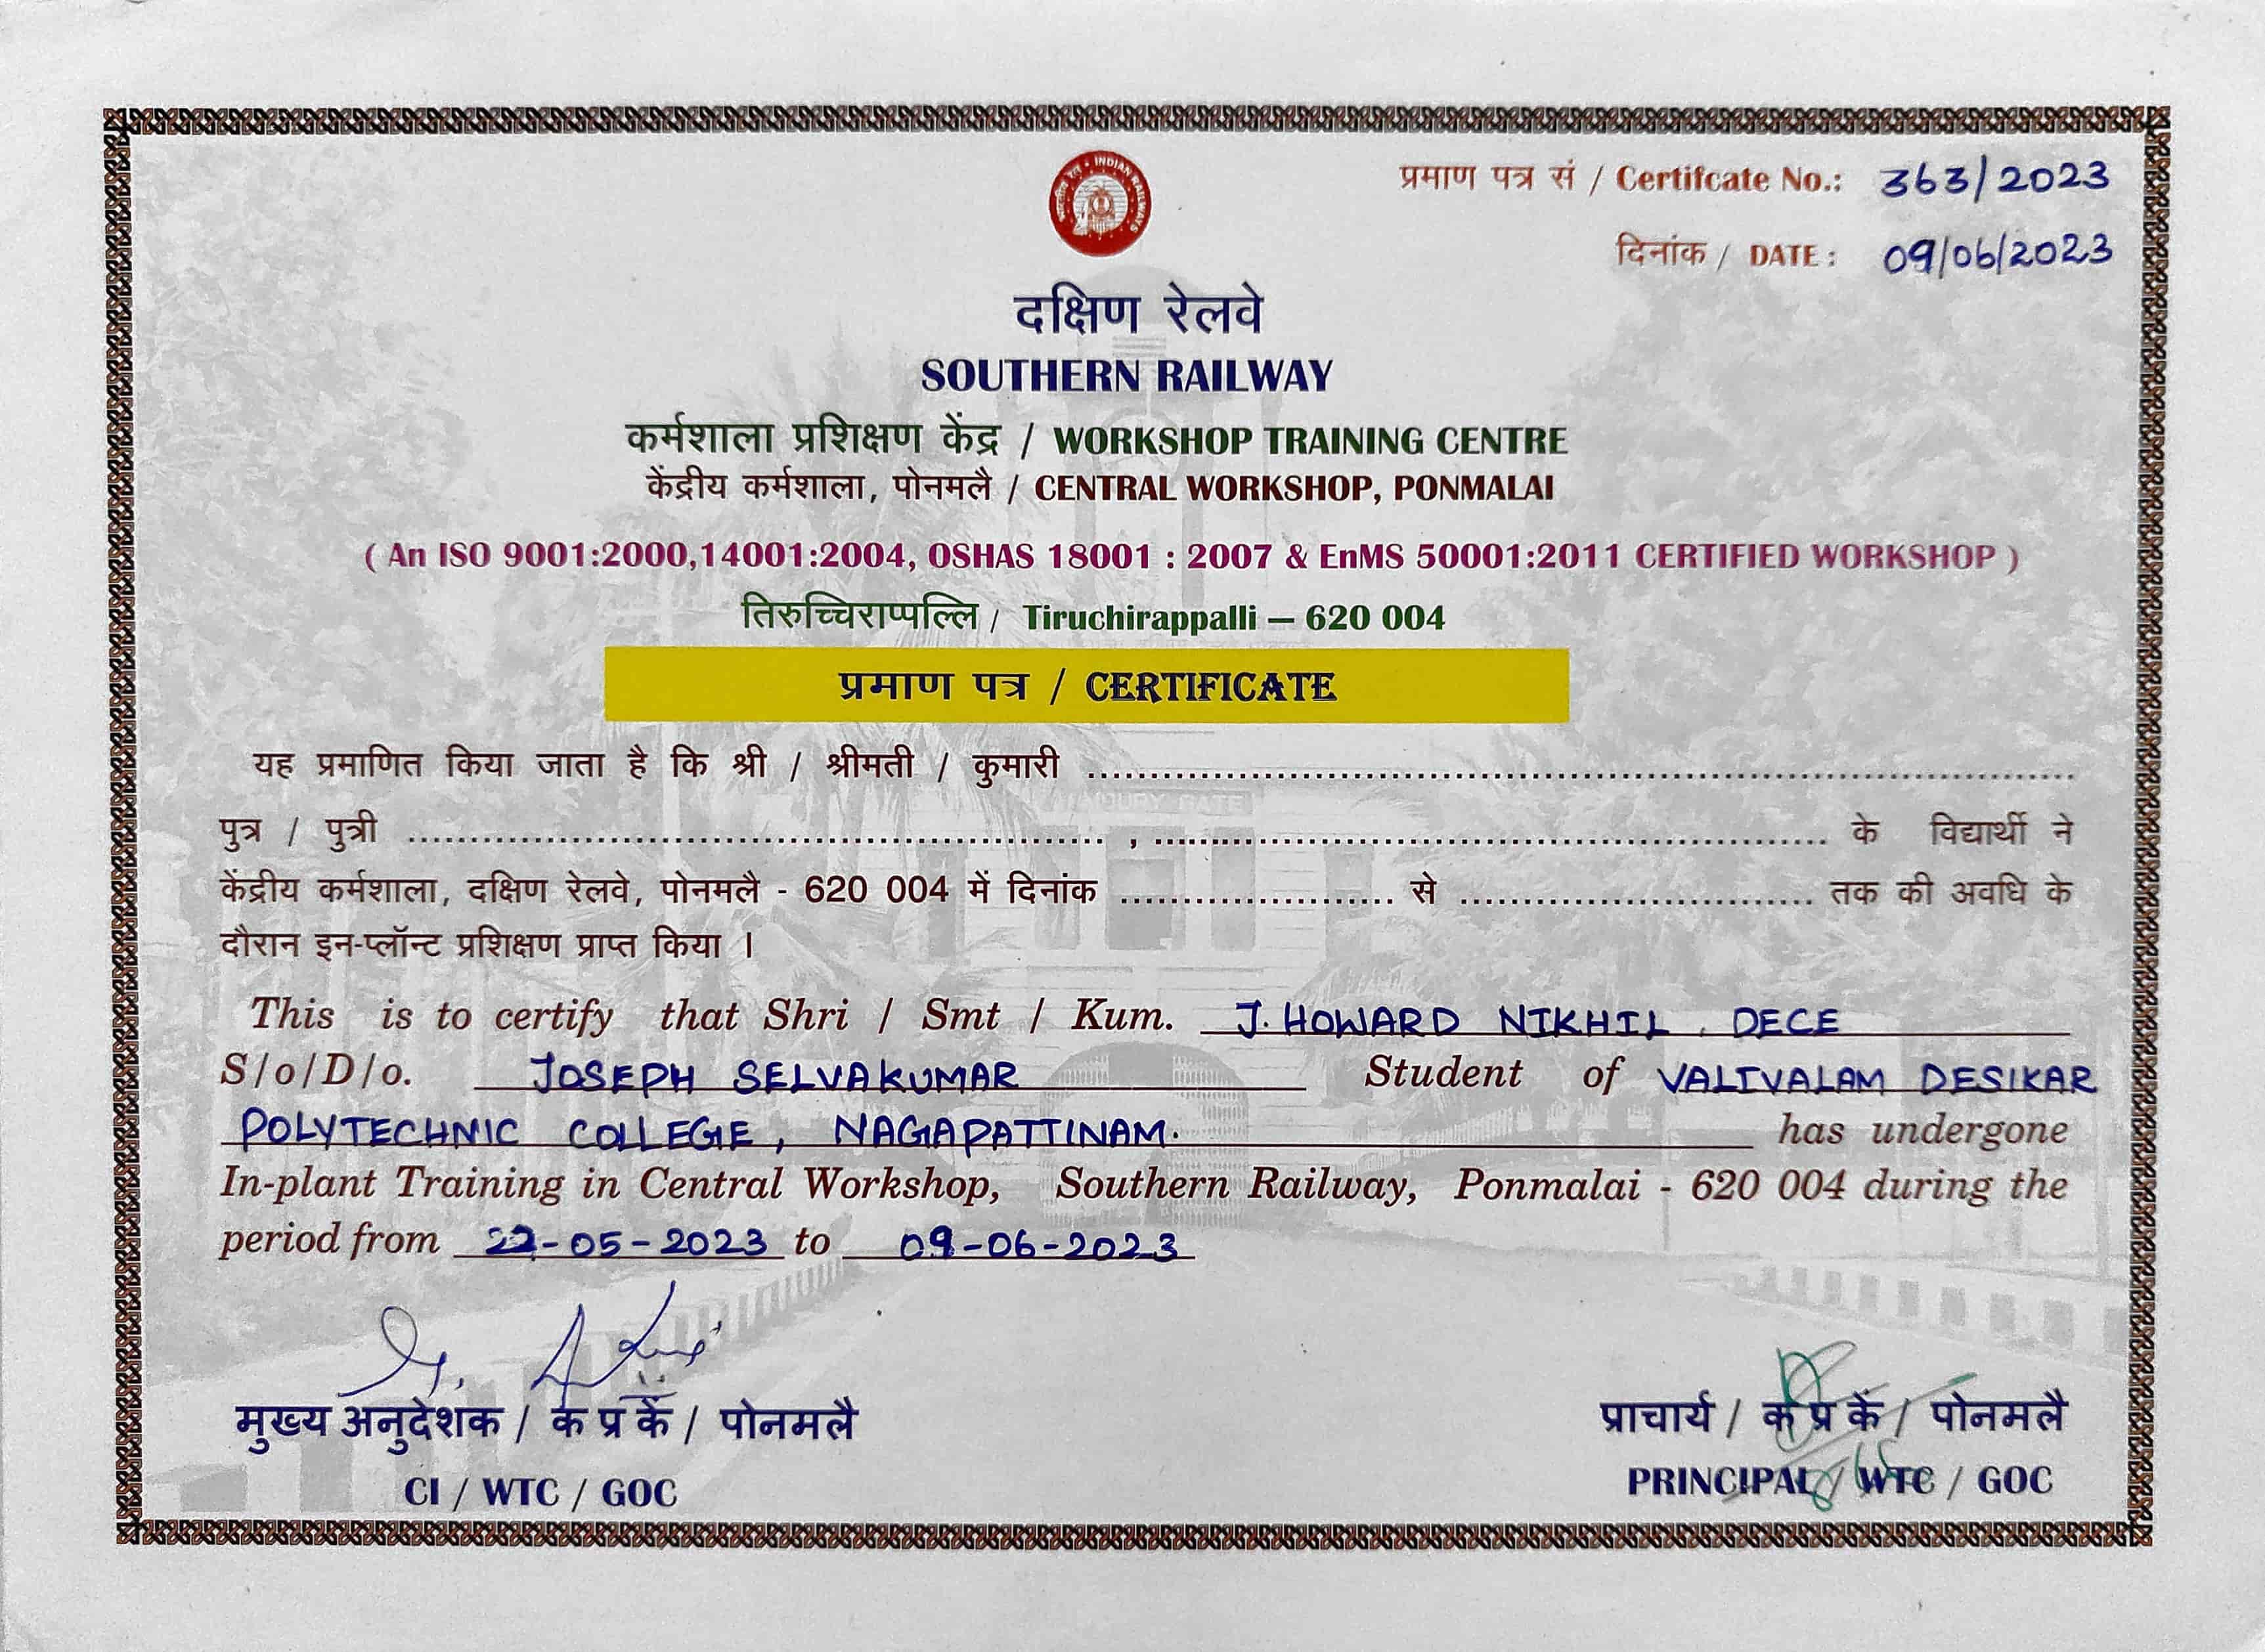 प्रमाण पत्र सं / Certifcate No.: 363/2023
दिनांक / DATE : 09/06/2023
INDIAN RAILWAYS
दक्षिण रेलवे
SOUTHERN RAILWAY
कर्मशाला प्रशिक्षण केंद्र / WORKSHOP TRAINING CENTRE
केंद्रीय कर्मशाला, पोनमलै / CENTRAL WORKSHOP, PONMALAI
( An ISO 9001:2000,14001:2004, OSHAS 18001 : 2007 & EnMS 50001:2011 CERTIFIED WORKSHOP )
तिरुच्चिराप्पल्लि / Tiruchirappalli – 620 004
प्रमाण पत्र / CERTIFICATE
यह प्रमाणित किया जाता है कि श्री / श्रीमती / कुमारी ........................................
पुत्र / पुत्री ........................................ , ........................................ के विद्यार्थी ने
केंद्रीय कर्मशाला, दक्षिण रेलवे, पोनमलै - 620 004 में दिनांक ...................... से ............................ तक की अवधि के
दौरान इन-प्लॉन्ट प्रशिक्षण प्राप्त किया ।
This is to certify that Shri / Smt / Kum. J. HOWARD NIKHIL, DECE
S/o/D/o. JOSEPH SELVAKUMAR Student of VALIVALAM DESIKAR
POLYTECHNIC COLLEGE, NAGAPATTINAM. has undergone
In-plant Training in Central Workshop, Southern Railway, Ponmalai - 620 004 during the
period from 22-05-2023 to 09-06-2023
मुख्य अनुदेशक / क प्र कें / पोनमलै
CI / WTC / GOC
प्राचार्य / क प्र कें / पोनमलै
PRINCIPAL / WTC / GOC